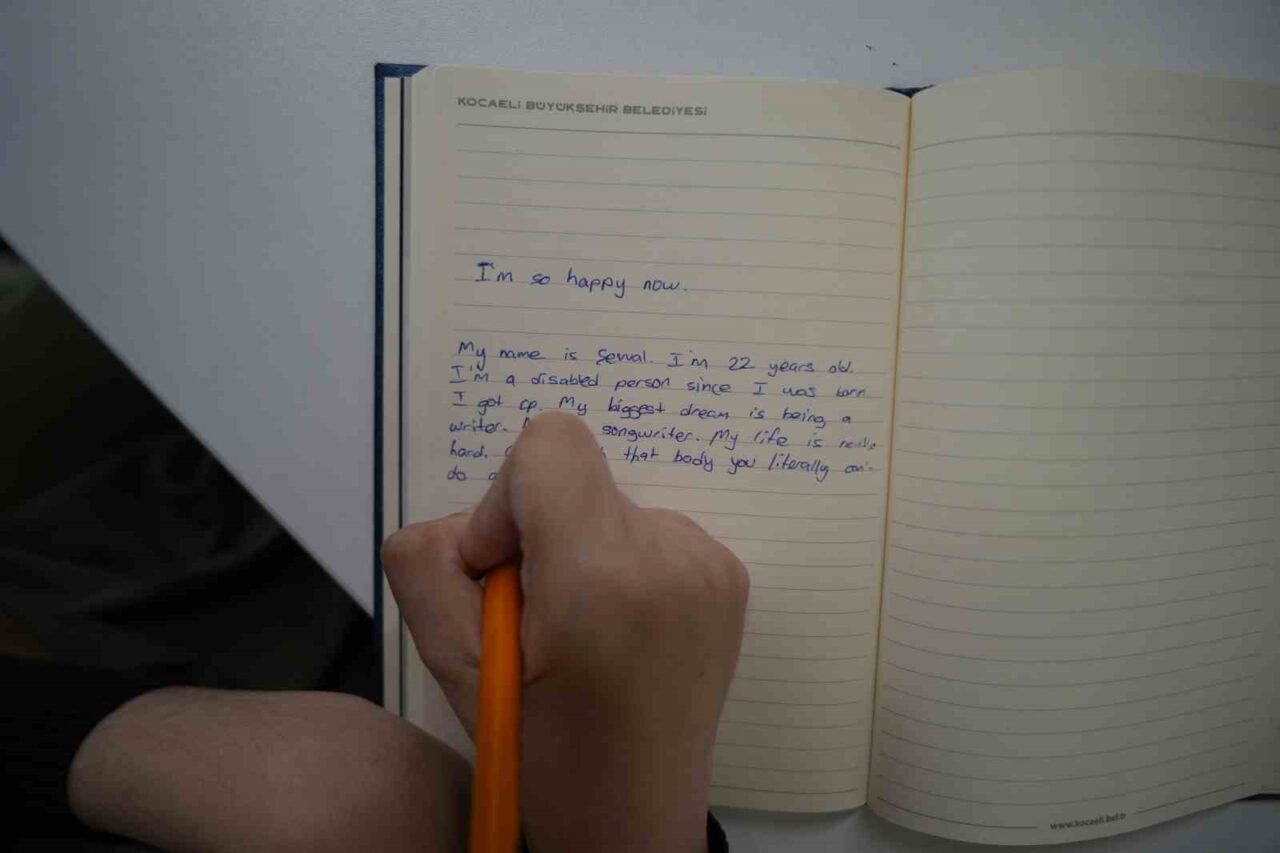 KOCAELİ BÜYÜKŞEHİR BELEDİYESİ
I'm so happy now.
My name is Serval. I'm 22 years old.
I'm a disabled person since I was born
I got cp. My biggest dream is being a
writer. songwriter. My life is really
hard. that body you literally can't
do
www.kocaeli.bel.tr